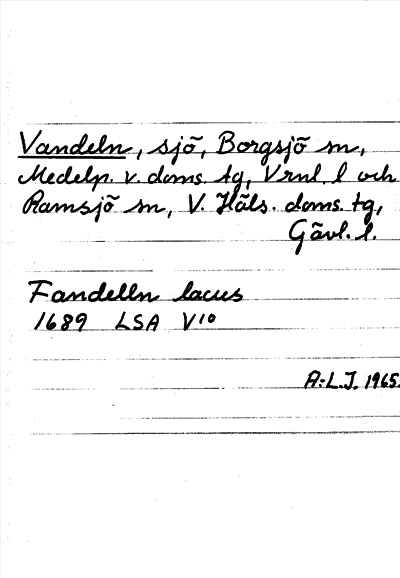 Vandeln, sjö, Borgsjö sn,
Medelp. v. doms. tg, Vrnl. l och
Ramsjö sn, V. Häls. doms. tg,
Gävl. l.
Fandelln lacus
1689 LSA V10
A-L.J. 1965.